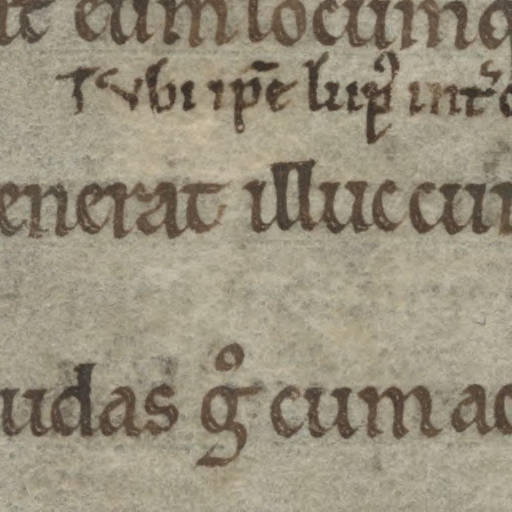 eum locumq
ubi ip̄e lup᷒ int᷒
enerat illuc cum
udas g᷒ cum ac